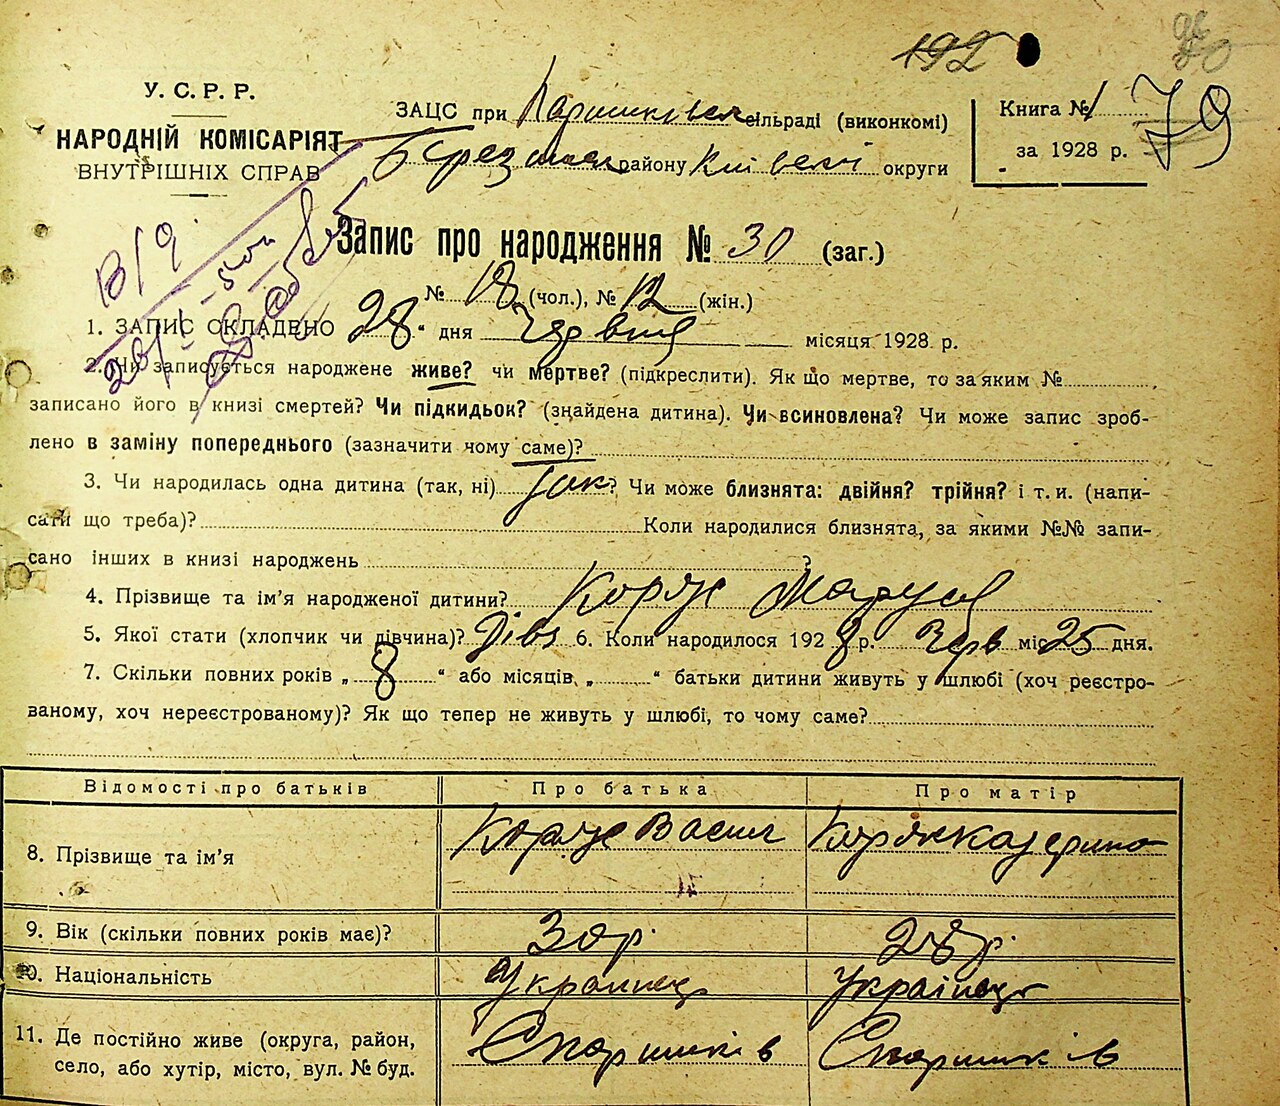 192
У. С. Р. Р.
НАРОДНІЙ КОМІСАРІЯТ
ВНУТРІШНІХ СПРАВ
ЗАЦС при сільраді (виконкомі)
району округи
Книга № 1 79
за 1928 р.
В/9
Запис про народження № 30 (заг.)
№ 18 (чол.), № 12 (жін.)
1. ЗАПИС СКЛАДЕНО 28 " дня Червня місяця 1928 р.
2. Чи записується народжене живе? чи мертве? (підкреслити). Як що мертве, то за яким №
записано його в книзі смертей? Чи підкидьок? (знайдена дитина). Чи всиновлена? Чи може запис зроб-
лено в заміну попереднього (зазначити чому саме)?
3. Чи народилась одна дитина (так, ні) так? Чи може близнята: двійня? трійня? і т. и. (напи-
сати що треба)? Коли народилися близнята, за якими №№ запи-
сано інших в книзі народжень ?
4. Прізвище та ім'я народженої дитини? Коряк Маруся
5. Якої статі (хлопчик чи дівчина)? Дівч 6. Коли народилося 1928 р. Черв міс 25 дня.
7. Скільки повних років „ 8 " або місяців „ " батьки дитини живуть у шлюбі (хоч реєстро-
ваному, хоч нереєстрованому)? Як що тепер не живуть у шлюбі, то чому саме?
Відомості про батьків Про батька Про матір
8. Прізвище та ім'я Коряк Васил Коряк Катерина
9. Вік (скільки повних років має)? 30р. 28р.
10. Національність Українець Українець
11. Де постійно живе (округа, район,
село, або хутір, місто, вул. № буд.